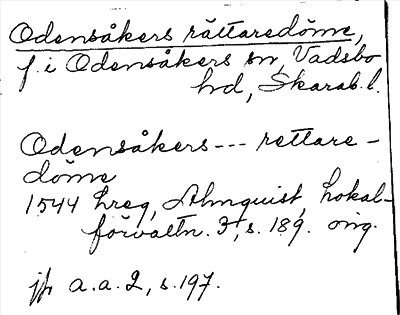 Odensåkers rättaredöme,
f. i Odensåkers sn, Vadsbo
hd, Skarab. l.
Odensåkers --- rettare-
döme
1544 hreg, Almquist, Lokal-
förvaltn. 3, s. 189. orig.
jfr a.a. 2, s. 197.